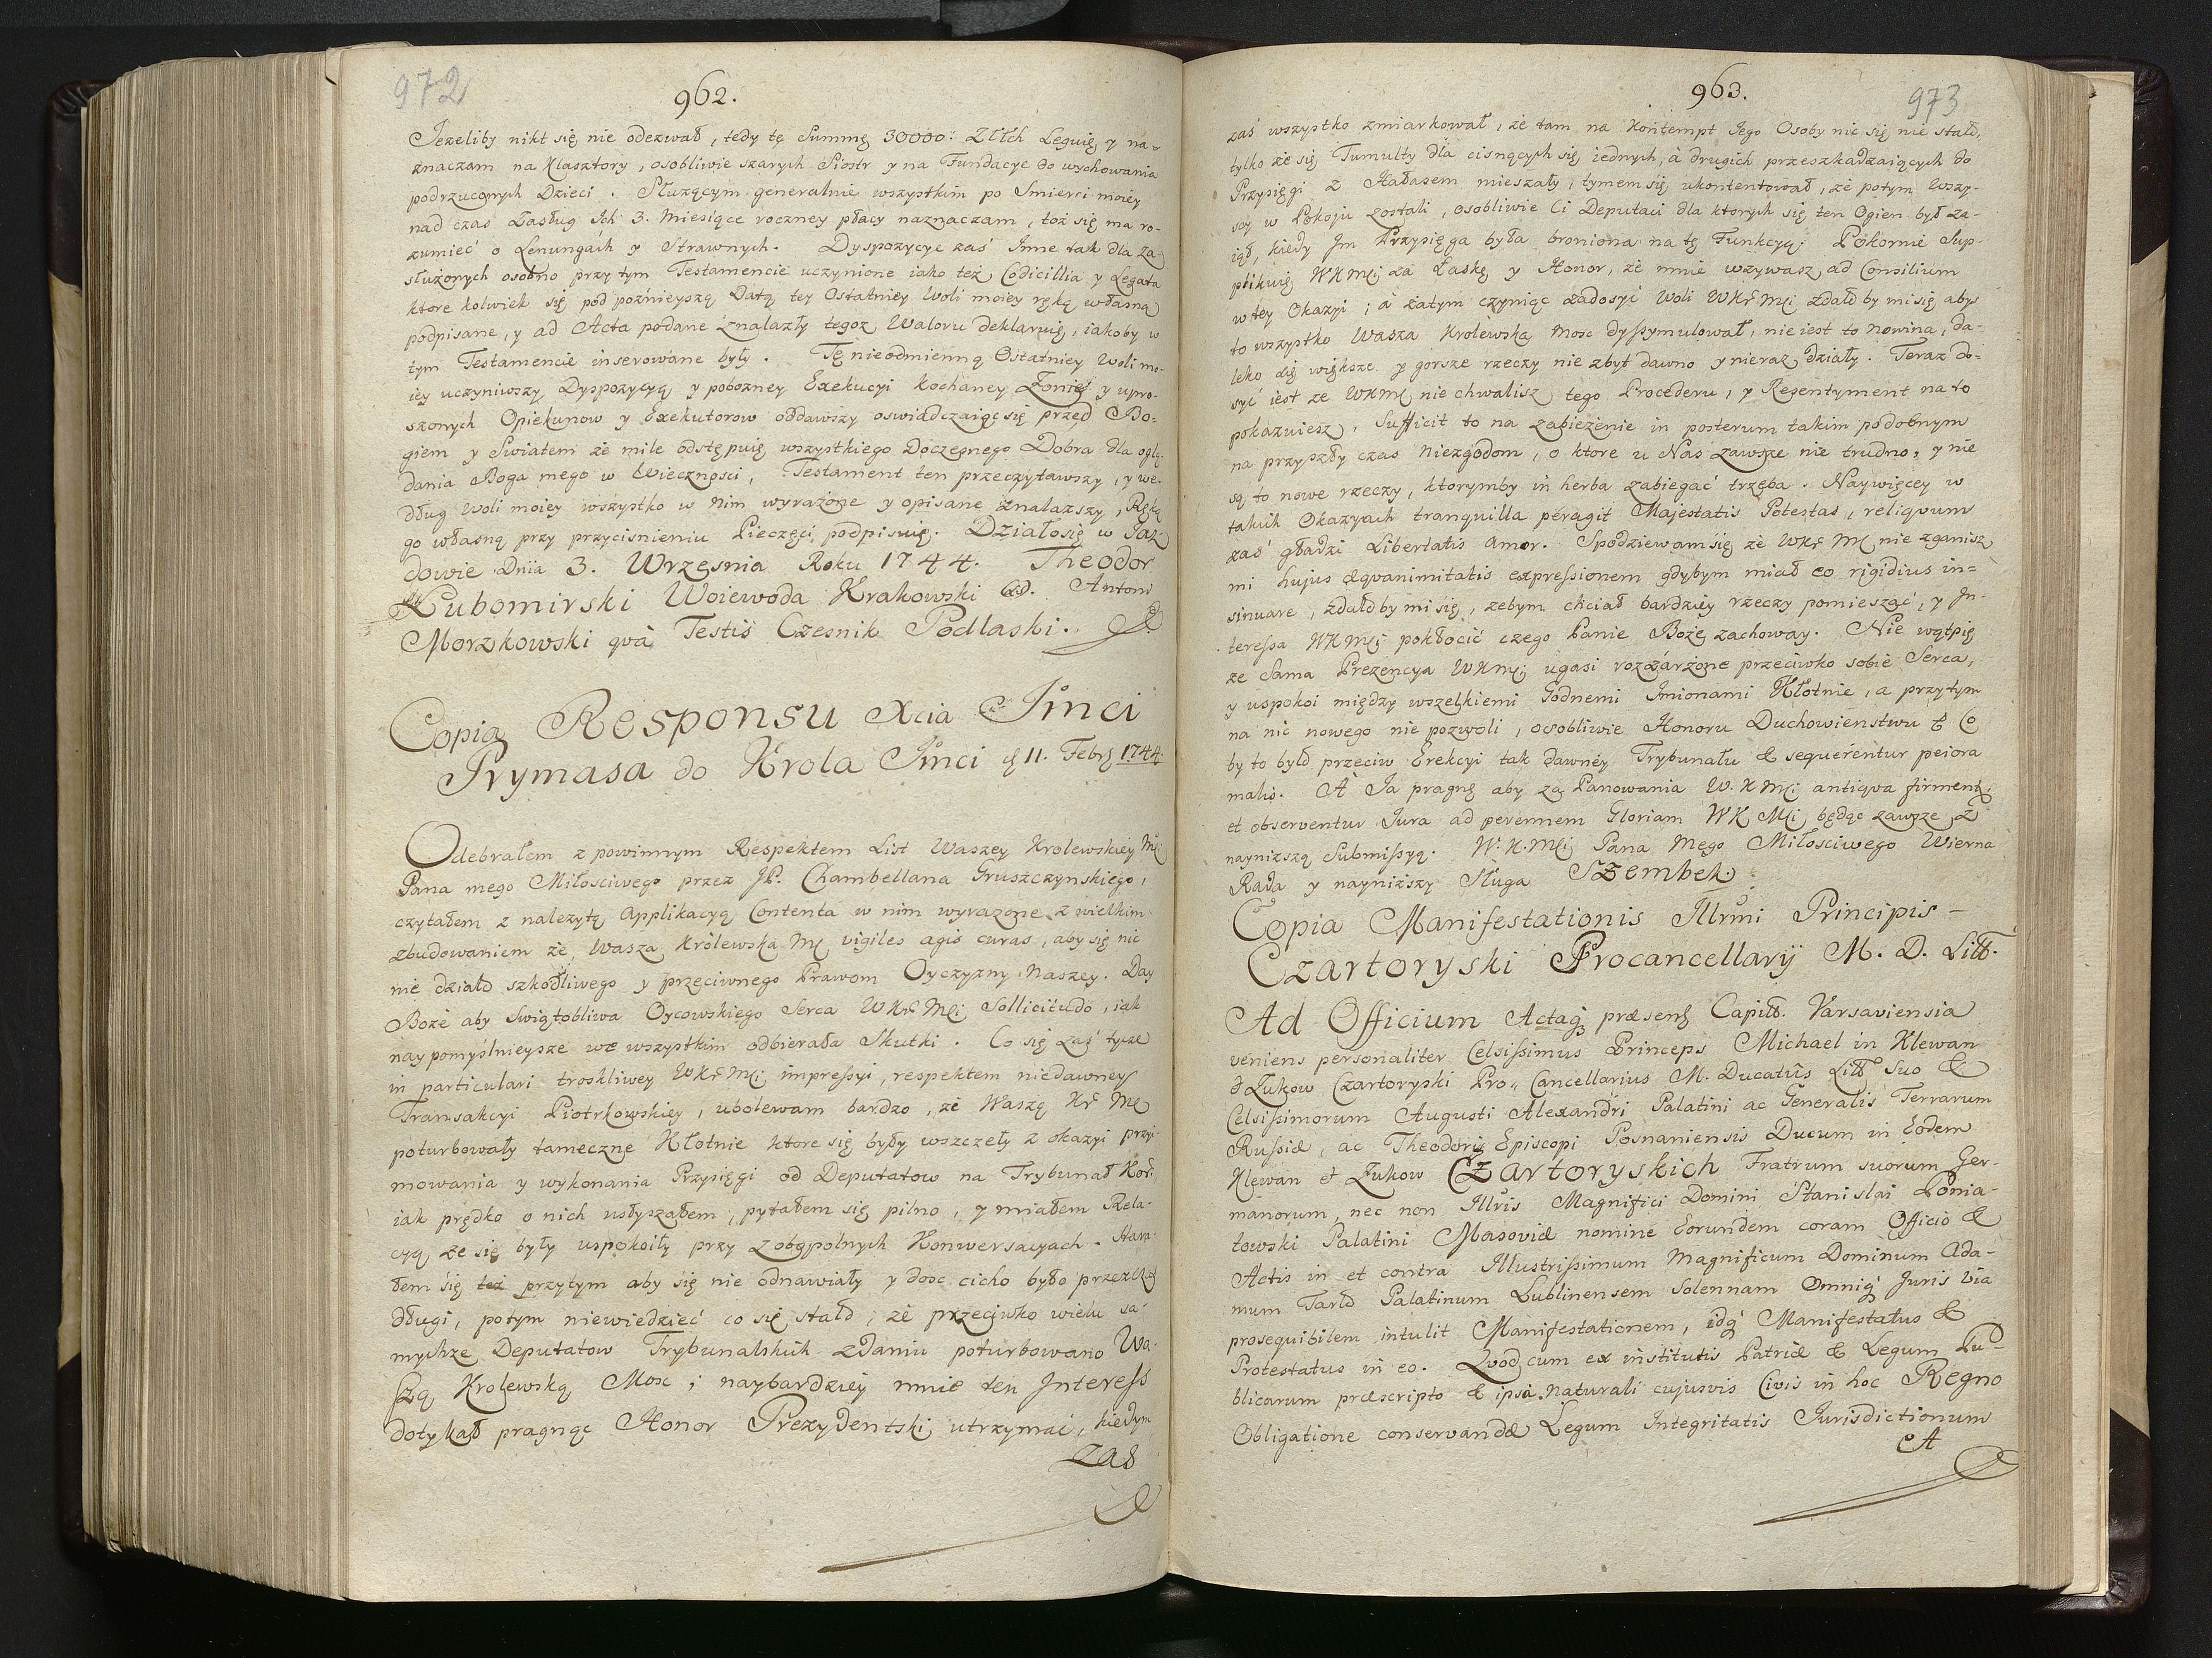 972
962.
Jezeliby nikt się nie odezwał, tedy tę Summę 30000: Złłch Leguię y na-
znaczam na Klasztory, osobliwie szarych Siostr y na Fundacye do wychowania
podrzuconych Dzieci. Służącym generalnie wszystkim po Smierci moiey
nad czas Zasług Ich 3. Miesiące roczney płacy naznaczam, toż się ma ro-
zumieć o Lenungach y Strawnych. Dyspozycye zaś Inne tak dla za-
służonych osobno przy tym Testamencie uczynione iako też Codicillia y Legata
ktore kolwiek się pod poznieyszą Datą tey Ostatniey Woli moiey ręką własną
podpisane, y ad Acta podane znalazły tegoż Waloru deklaruię, iakoby w
tym Testamencie inserowane były. Tę nieodmienną Ostatniey Woli mo-
iey uczyniwszy Dyspozycyą y pobożney Exekucyi kochaney Żonie y upro-
szonych Opiekunow y Exekutorow oddawszy oswiadczaiąc się przed Bo-
giem y Swiatem że mile odstępuię wszystkiego Doczesnego Dobra dla oglą-
dania Boga mego w Wiecznosci, Testament ten przeczytawszy, y we-
dług Woli moiey wszystko w Nim wyrażone y opisane znalazszy, Ręką
go własną przy przycisnieniu Pieczęci podpisuię. Działo się w Jaz-
dowie Dnia 3. Wrzesnia Roku 1744. Theodor
Lubomirski Woiewoda Krakowski Antoni
Morzkowski qvà Testis Czesnik Podlaski.
Copia Responsu Xcia Jmci
Prymasa do Krola Jmci d 11. Febr 1744
Odebrałem z powinnym Respektem List Waszey Krolewskiey Mci
Pana mego Miłosciwego przez JP. Chambellana Gruszczynskiego,
czytałem z należytą Applikacyą Contenta w nim wyrażone z wielkim
zbudowaniem że Wasza Królewska Mć vigiles agis curas, aby się nic
nie działo szkodliwego y przeciwnego Prawom Oyczyzny Naszey. Day
Boże aby Swiątobliwa Oycowskiego Serca WKr Mci Sollicitudo, iak
naypomyslnieysze we wszystkim odbierała Skutki. Co się zaś tycze
in particulari troskliwey WKr Mci impressyi, respektem niedawney
Transakcyi Piotrkowskiey, ubolewam bardzo, że Waszę Kr Mć
poturbowały tameczne Kłotnie ktore się były wszczeły z okazyi przy-
mowania y wykonania Przysięgi od Deputatow na Trybunał Kor:
iak prędko o nich usłyszałem, pytałem się pilno, y miałem Rela-
cyą że się były uspokoiły przy zobopolnych Konwersacyach. Stara-
łem się też przytym aby się nie odnawiały y dosc cicho było przez czas
długi, potym niewiedzieć co się stało, że przeciwko wielu sa-
mychże Deputatow Trybunalskich zdaniu poturbowano Wa-
szą Krolewską Mosc; naybardziey mnie ten Interess
dotykał pragnąc Honor Prezydentski utrzymać, kiedym
zaś
963.
973
zaś wszystko zmiarkował, że tam na Kontempt Jego Osoby nic się nie stało,
tylko że się Tumulty dla cisnących się iednych, à drugich przeszkadzaiących do
Przysięgi z Hałasem mieszały, tymem się ukontentował, że potym Wszy-
scy w Pokoju zostali, osobliwie Ci Deputaci dla ktorych się ten Ogien był za-
iął, kiedy Im Przysięga była broniona na tę Funkcyą. Pokornie Sup-
plikuię WKMci za Łaskę y Honor, że mnie wzywasz ad Consilium
w tey Okazyi; à zatym czyniąc zadosyć Woli WKr Mci zdało by mi się aby
to wszystko Wasza Krolewska Mosc dyssymulował, nie iest to nowina, da-
leko się większe y gorsze rzeczy nie zbyt dawno y nieraz działy. Teraz do-
syć iest że WKMć nie chwalisz tego Procederu, y Resentyment na to
pokazuiesz, Sufficit to na zabieżenie in posterum takim podobnym
na przyszły czas niezgodom, o ktore u Nas zawsze nie trudno, y nie
są to nowe rzeczy, ktorymby in herba zabiegać trzeba. Naywięcey w
takich Okazyach tranquilla peragit Majestatis Potestas, reliqvum
zaś gładzi Libertatis Amor. Spodziewam się że WKr Mć nie zganisz
mi hujus æqvanimitatis expressionem gdybym miał eo rigidius in-
sinuare, zdało by mi się, zebym chciał bardziey rzeczy pomieszać, y In-
teressa WKMci pokłocić czego Panie Boże zachoway. Nie wątpię
że Sama Prezencya WKMci ugasi rozżarzone przeciwko sobie Serca,
y uspokoi między wszelkiemi Godnemi Imionami Kłotnie, a przytym
na nic nowego nie pozwoli, osobliwie Honoru Duchowienstwu & Co
by to było przeciw Erekcyi tak dawney Trybunału & sequerentur peiora
malis. A Ja pragnę aby za Panowania W.K Mci antiqva firment.
et observentur Jura ad perennem Gloriam WK Mci będąc zawsze z
nayniższą Submissyą. W.K.Mci Pana Mego Miłosciwego Wierna
Rada y nayniższy Sługa Szembek
Copia Manifestationis Illrmi Principis
Czartoryski Procancellarij M. D. Litt.
Ad Officium Actaq præsens Capitt. Varsaviensia
veniens personaliter Celsissimus Princeps Michael in Klewan
& Zukow Czartoryski Pro Cancellarius M. Ducatûs Litt Suo &
Celsissimorum Augusti Alexandri Palatini ac Generalis Terrarum
Russiæ, ac Theodori Episcopi Posnaniensis Ducum in Eodem
Klewan et Zukow Czartoryskich Fratrum suorum Ger-
manorum nec non Illris Magnifici Domini Stanislai Ponia-
towski Palatini Masoviæ nomine Eorundem coram Officio &
Actis in et contra Illustrissimum Magnificum Dominum Ada-
mum Tarło Palatinum Lublinensem Solennam Omniq Juris Via
prosequibilem intulit Manifestationem, idq Manifestatus &
Protestatus in eo. Qvod cum ex institutis Patriæ & Legum Pu-
blicarum præscripto & ipsâ Naturali cujusvis Civis in hoc Regno
Obligatione conservandæ Legum Integritatis Jurisdictionum
A